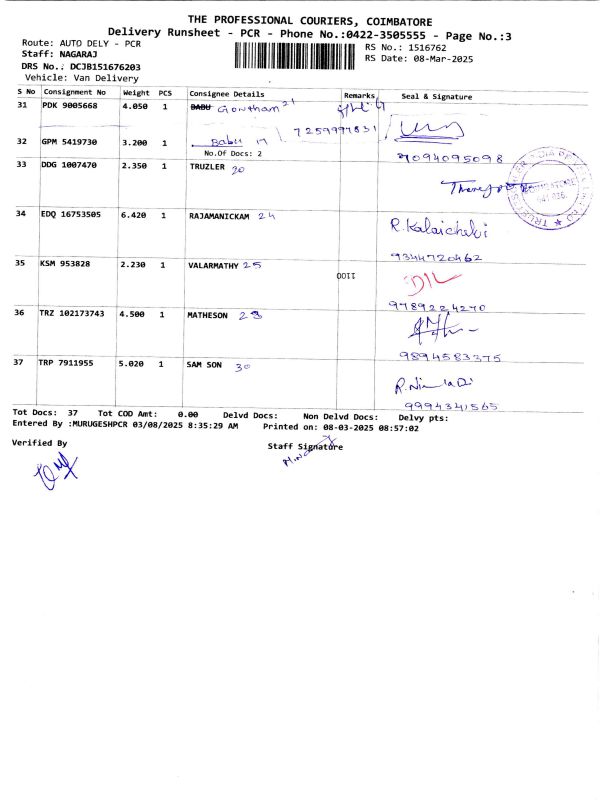 THE PROFESSIONAL COURIERS, COIMBATORE
Delivery Runsheet - PCR - Phone No.:0422-3505555 - Page No.:3
Route: AUTO DELY - PCR
RS No.: 1516762
Staff: NAGARAJ
RS Date: 08-Mar-2025
DRS No.: DCJB151676203
Vehicle: Van Delivery
S No Consignment No Weight PCS Consignee Details Remarks Seal & Signature
31 PDK 9005668 4.050 1 BABU Gowtham 21
7259997831
32 GPM 5419730 3.200 1 Babu 17
No.Of Docs: 2
9094095098
33 DDG 1007470 2.350 1 TRUZLER 20
34 EDQ 16753505 6.420 1 RAJAMANICKAM 24 R.Kalaichelvi
9344720462
35 KSM 953828 2.230 1 VALARMATHY 25 1100 DIL
9789224270
36 TRZ 102173743 4.500 1 MATHESON 23
9894583375
37 TRP 7911955 5.020 1 SAM SON 30
9994341565
Tot Docs: 37 Tot COD Amt: 0.00 Delvd Docs: Non Delvd Docs: Delvy pts:
Entered By :MURUGESHPCR 03/08/2025 8:35:29 AM Printed on: 08-03-2025 08:57:02
Verified By
Staff Signature